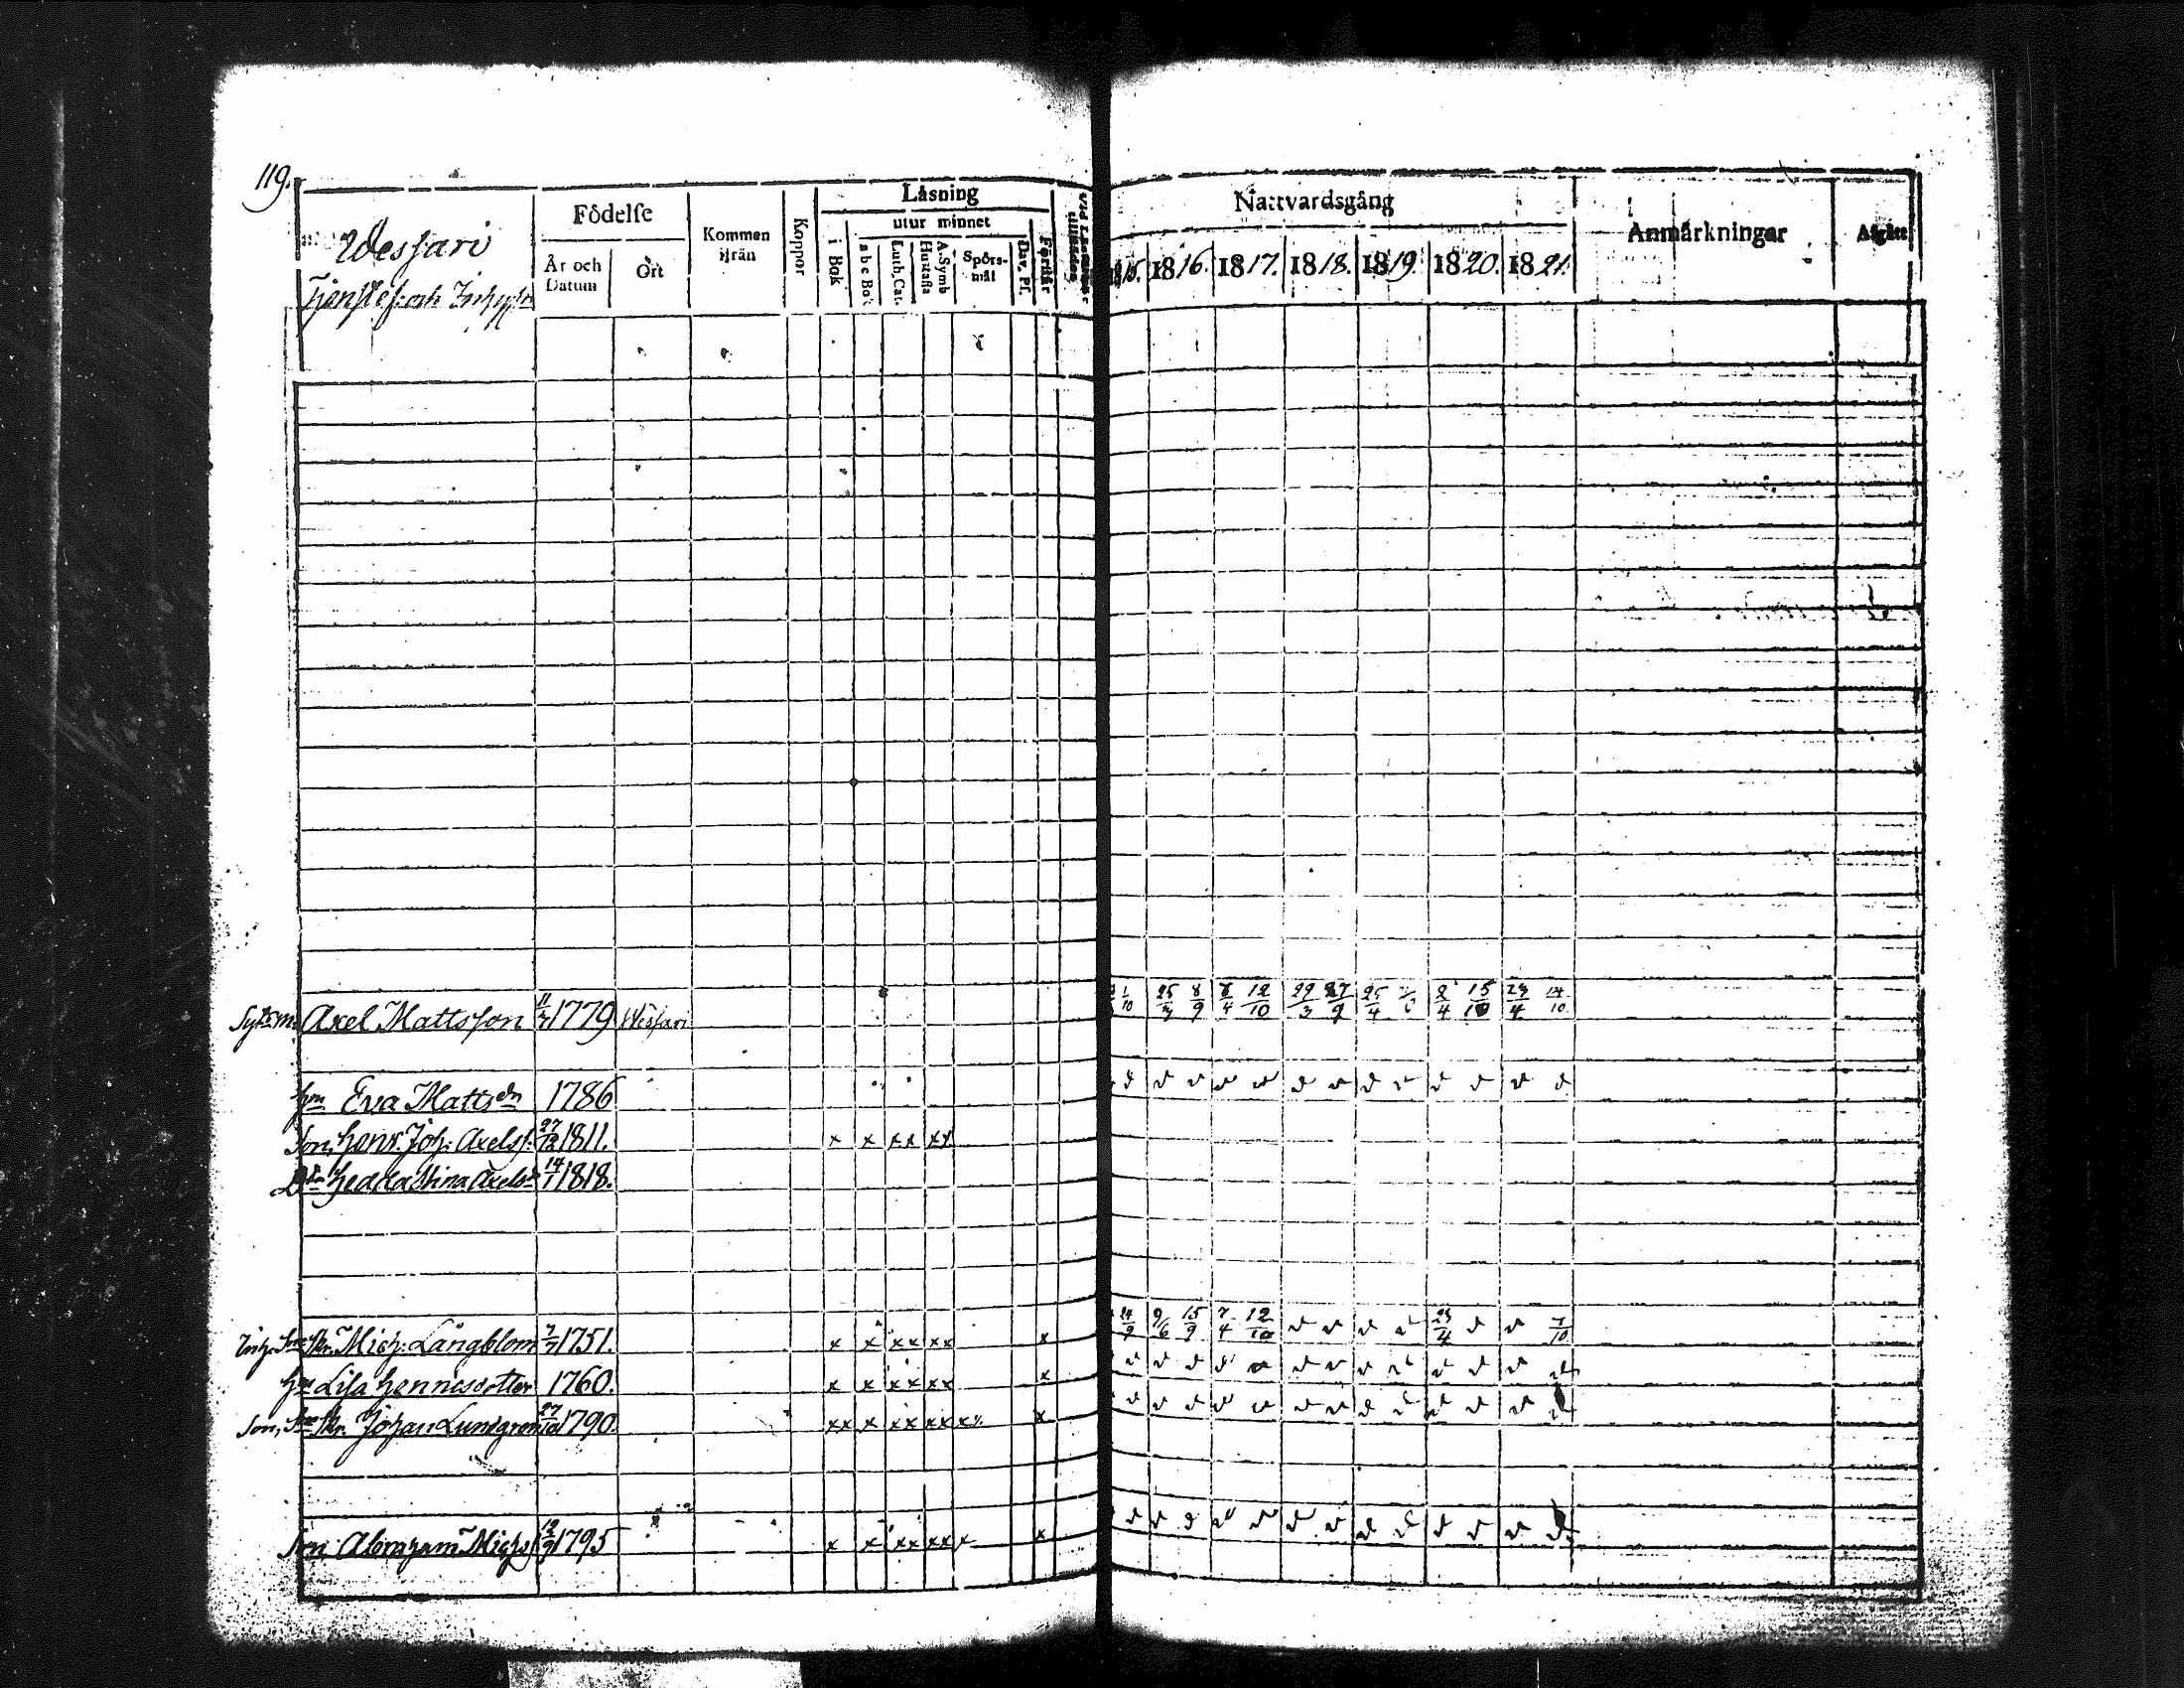 119.
Wesjari
Tjenstef. och Inhyses
Födelse
År och Datum
Ort
Kommen ifrån
Koppor
Läsning
i Bok
utur minnet
a b c Bok
Luth. Cat.
A. Symb Hustafla
Spörsmål
Dav. Ps.
Förstår
Nattvardsgång
1815. 1816. 1817. 1818. 1819. 1820. 1821.
Anmärkningar
Afgått
Axel Mattsson 11/7 1779 Wesjari 1/10 25/3 8/9 8/4 12/10 29/3 27/9 25/4 2/4 15/10 23/4 14/10
hu Eva Mattsdr 1786
Son, Henr. Joh. Axelss. 27/12 1811. x x xx xx
Dr Hedda Stina Axelsdr 14/1 1818.
Inh. Mich. Långblom 7/7 1751. x x xx xx x 24/9 9/6 15/9 7/4 12/10 23/4 7/10
hu Lisa Hennicsdotter 1760. x x xx xx x
Son, Johan Lundgren 27/10 1790. xx x xx xx xx x
Son Abraham Michss. 12/9 1795 x x xx xx x x